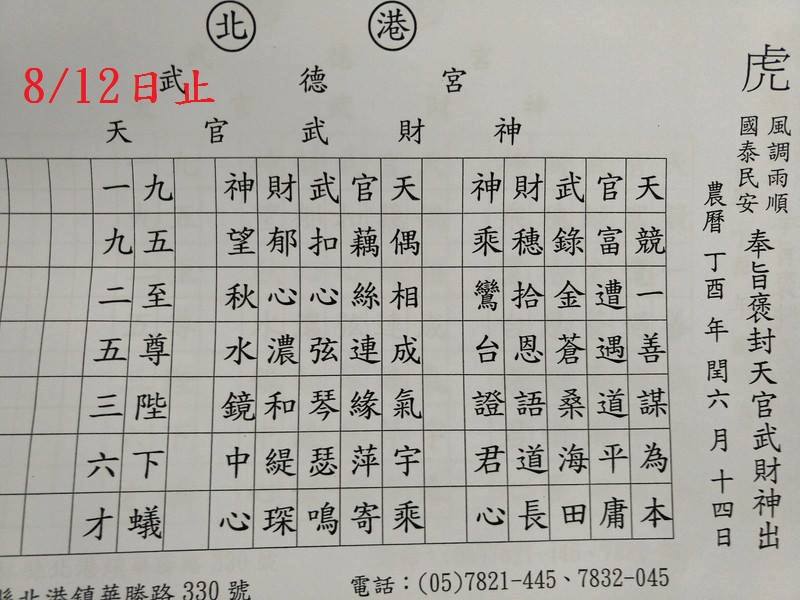 虎
風調雨順
國泰民安
奉旨褒封天官武財神出
農曆 丁酉 年 閏六 月 十四日
北 港
武 德 宮
8/12日止
天 官 武 財 神
天競一善謀為本
官富遭遇道平庸
武錄金蒼桑海田
財穗拾恩語道長
神乘鸞台證君心
天偶相成氣宇乘
官藕絲連緣萍寄
武扣心弦琴瑟鳴
財郁心濃和緹琛
神望秋水鏡中心
九五至尊陛下蟻
一九二五三六才
北港鎮華勝路 330 號
電話：(05)7821-445、7832-045